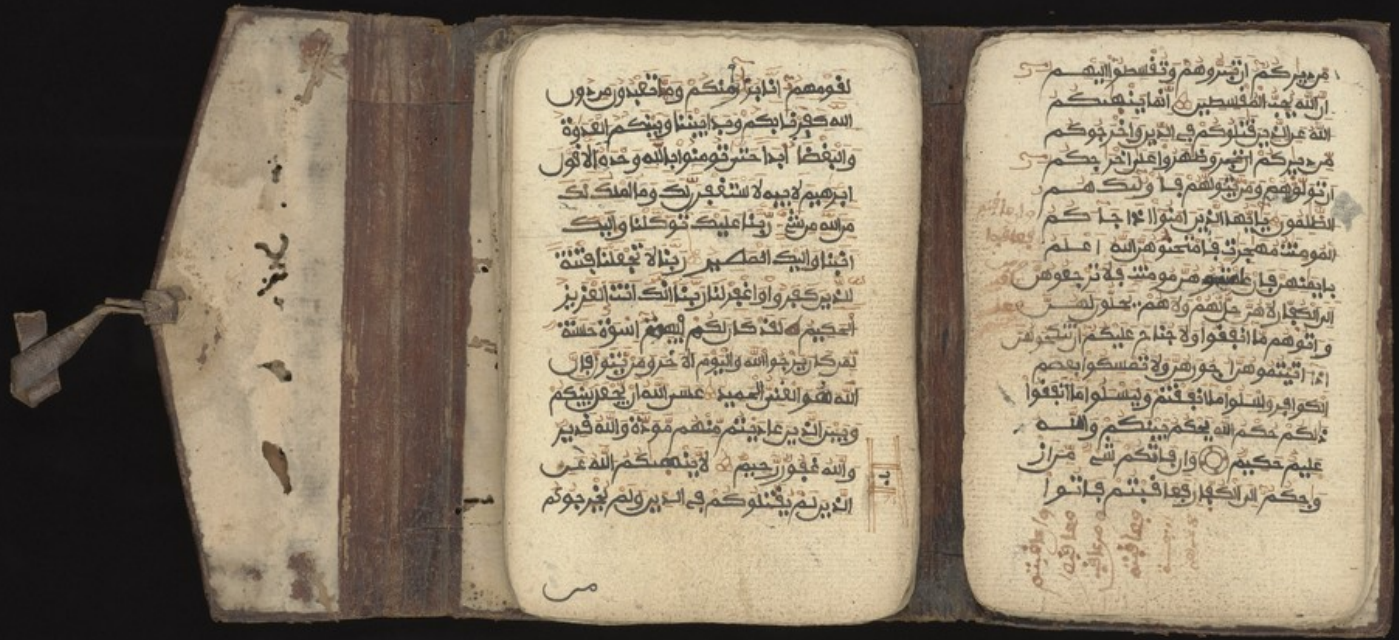 لقومهم انا برءاؤا منكم ومما تعبدون من دون
الله كفرنا بكم وبدا بيننا وبينكم العدوة
والبغضا ابدا حتى تومنوا بالله وحده الا قول
ابرهيم لابيه لاستغفرن لك وما املك لك
من الله من شيء ربنا عليك توكلنا واليك
انبنا واليك المصير ربنا لا تجعلنا فتنة
للذين كفروا واغفر لنا ربنا انك انت العزيز
الحكيم لقد كان لكم فيهم اسوة حسنة
لمن كان يرجوا الله واليوم الاخر ومن يتول فان
الله هو الغني الحميد عسى الله ان يجعل بينكم
وبين الذين عاديتم منهم مودة والله قدير
والله غفور رحيم لا ينهيكم الله عن
الذين لم يقتلوكم في الدين ولم يخرجوكم
من
من ديركم ان تبروهم وتقسطوا اليهم
ان الله يحب المقسطين انما ينهيكم
الله عن الذين قتلوكم في الدين واخرجوكم
من ديركم وظهروا على اخراجكم
ان تولوهم ومن يتولهم فاولئك هم
الظلمون يايها الذين امنوا اذا جاكم
المومنت مهجرت فامتحنوهن الله اعلم
بايمنهن فان علمتموهن مومنت فلا ترجعوهن
الى الكفار لا هن حل لهم ولا هم يحلون لهن
واتوهم ما انفقوا ولا جناح عليكم ان تنكحوهن
اذا اتيتموهن اجورهن ولا تمسكوا بعصم
الكوافر وسلوا ما انفقتم وليسلوا ما انفقوا
ذلكم حكم الله يحكم بينكم والله
عليم حكيم وان فاتكم شيء من از
وجكم الى الكفار فعاقبتم فاتوا